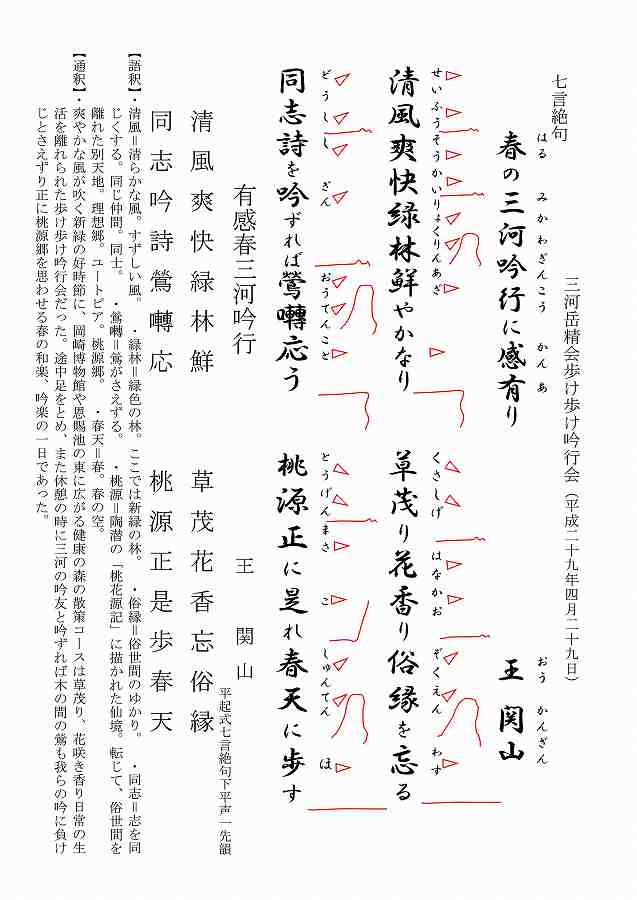 七言絶句
三河岳精会歩け歩け吟行会（平成二十九年四月二十九日）
はる　みかわぎんこう　かん　あ
春の三河吟行に感有り
おう　かんざん
王　関山
せいふうそうかいりょくりんあざ
清風爽快緑林鮮やかなり
くさしげ　はなかお　ぞくえん　わす
草茂り花香り俗縁を忘る
どうしし　ぎん　おうてんこと
同志詩を吟ずれば鶯囀応う
とうげんまさ　こ　しゅんてん　ほ
桃源正に是れ春天に歩す
有感春三河吟行
王　関山
平起式七言絶句下平声一先韻
清風爽快緑林鮮
草茂花香忘俗縁
同志吟詩鶯囀応
桃源正是歩春天
【語釈】・清風＝清らかな風。すずしい風。　・緑林＝緑色の林。ここでは新緑の林。　・俗縁＝俗世間のゆかり。　・同志＝志を同
じくする。同じ仲間。同士。　・鶯囀＝鶯がさえずる。　・桃源＝陶潜の「桃花源記」に描かれた仙境。転じて、俗世間を
離れた別天地。理想郷。ユートピア。桃源郷。　・春天＝春。春の空。
【通釈】・爽やかな風が吹く新緑の好時節に、岡崎博物館や恩賜池の東に広がる健康の森の散策コースは草茂り、花咲き香り日常の生
活を離れられた歩け歩け吟行会だった。途中足をとめ、また休憩の時に三河の吟友と吟ずれば木の間の鶯も我らの吟に負け
じとさえずり正に桃源郷を思わせる春の和楽、吟楽の一日であった。